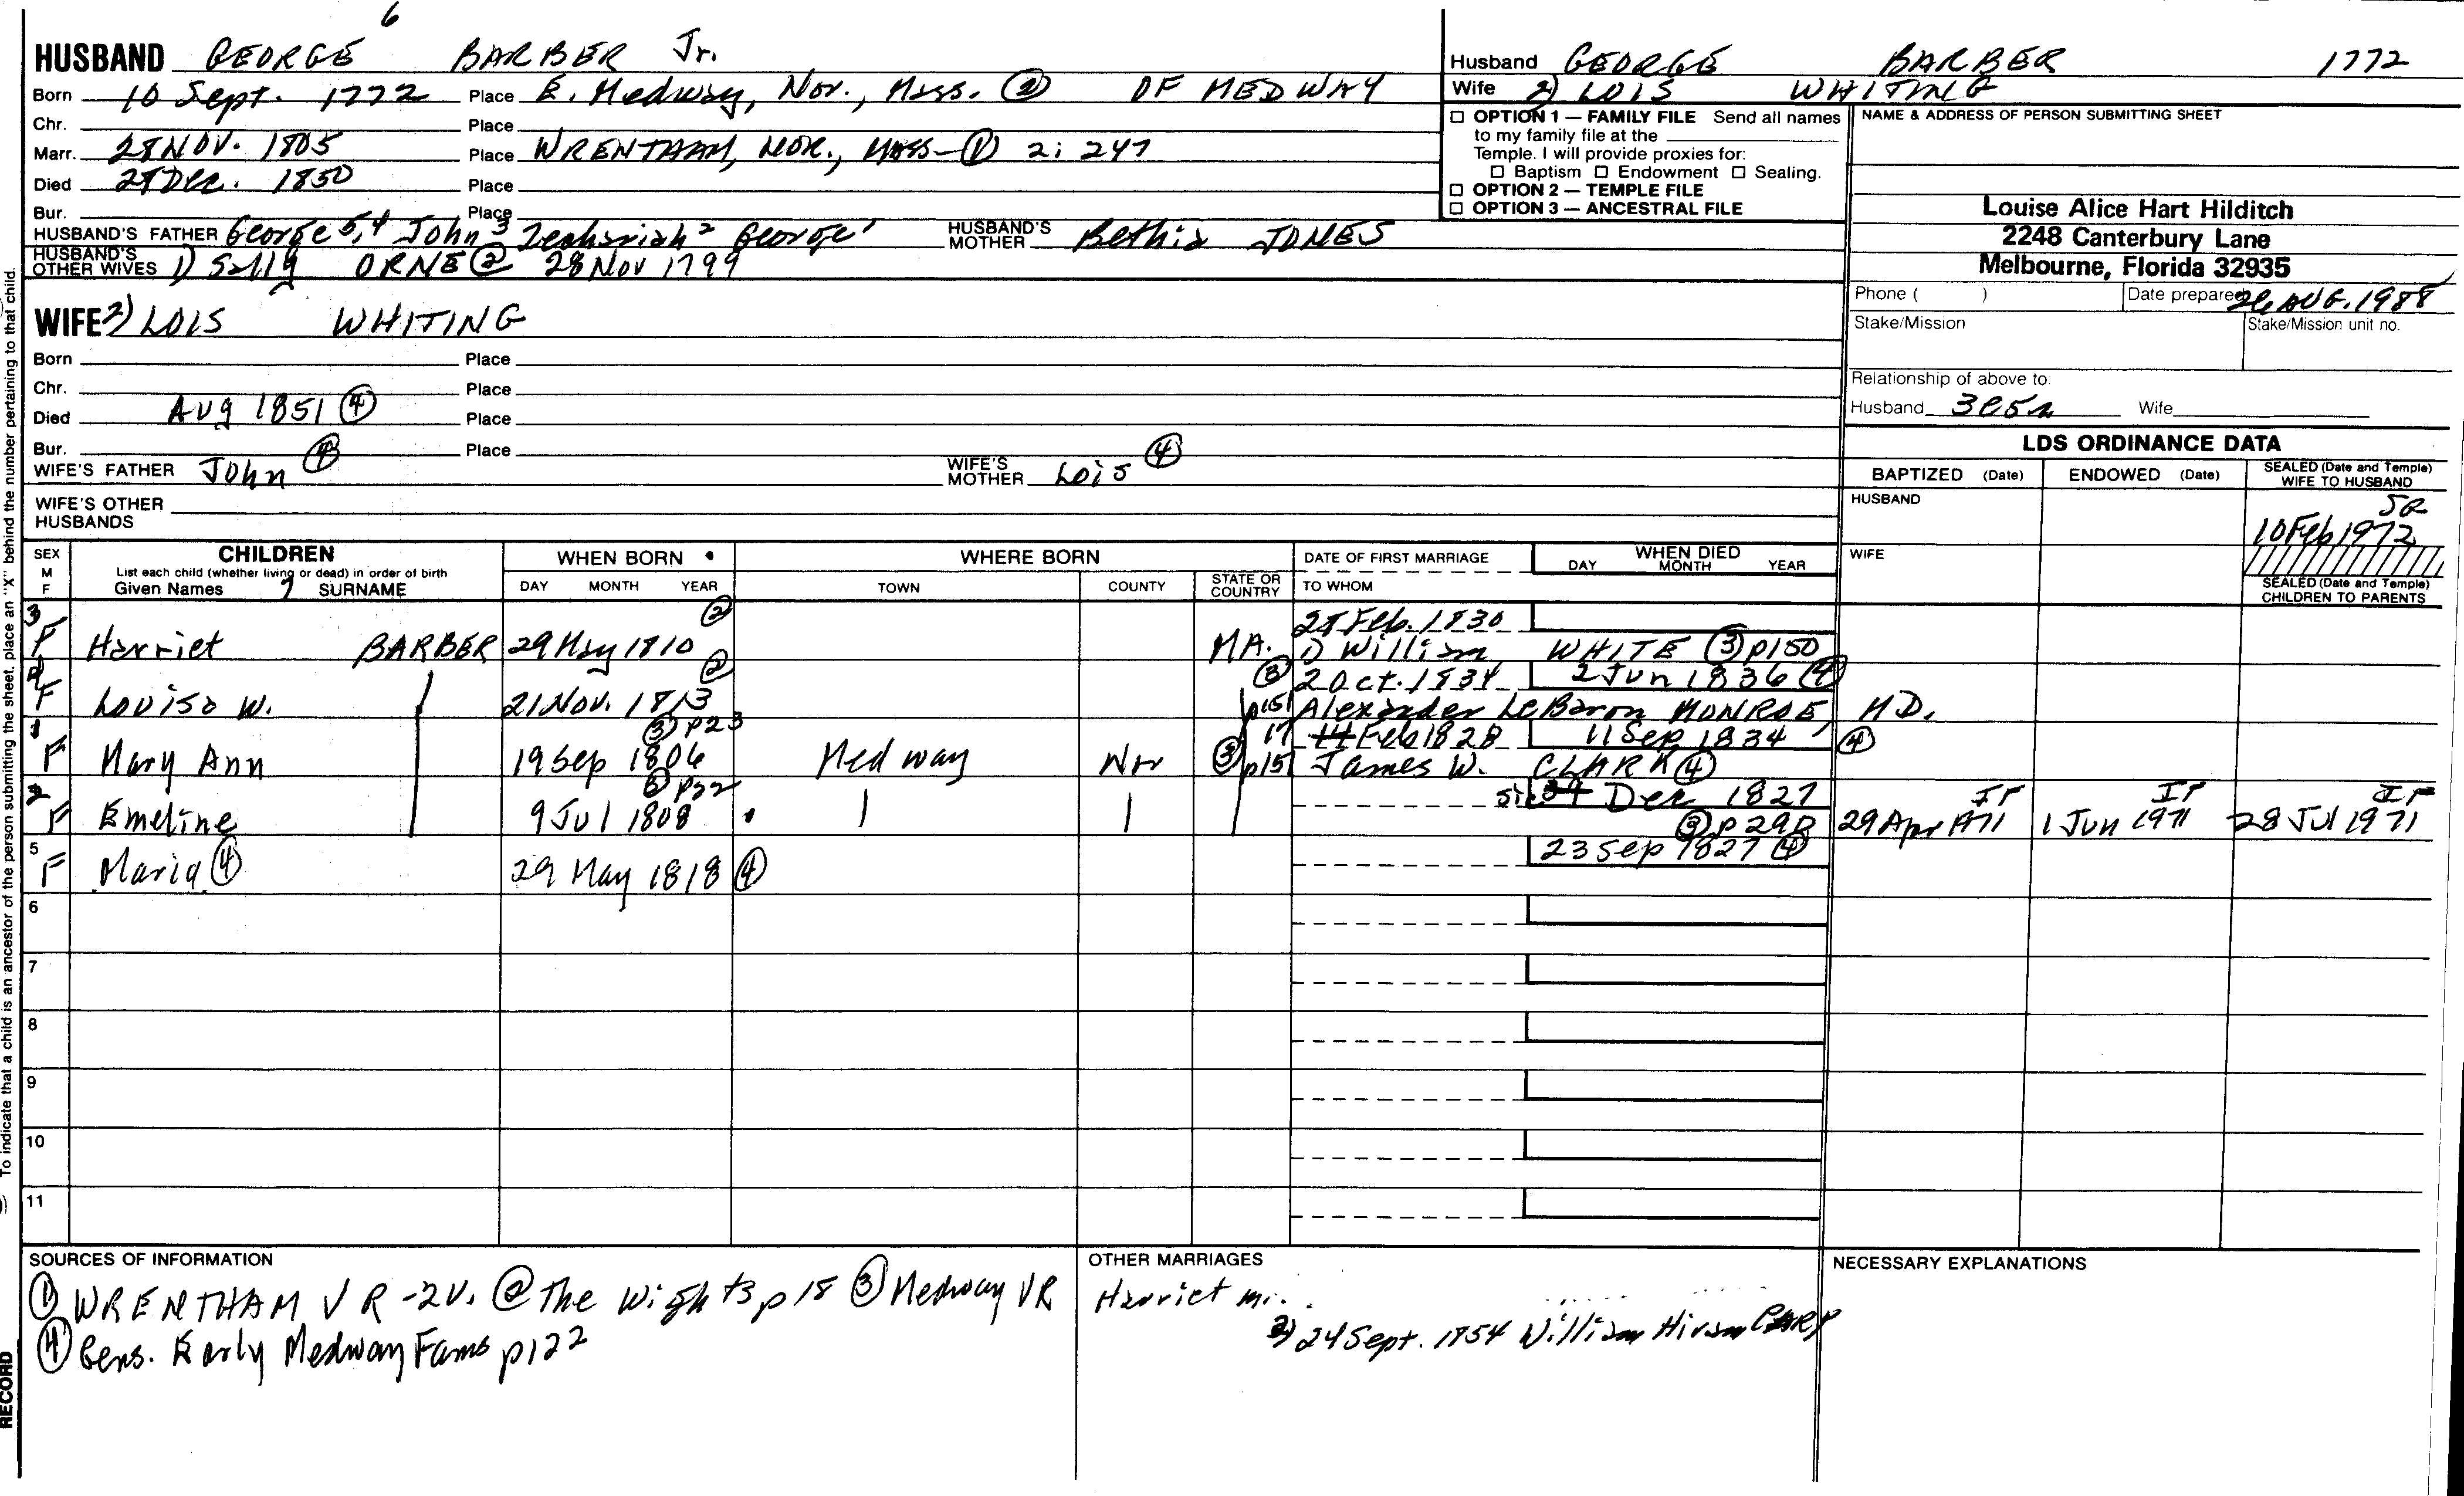 6
HUSBAND GEORGE BARBER Jr.
Born 10 Sept. 1772 Place E. Medway, Nor., Mass. ② OF MEDWAY
Chr. Place
Marr. 28 NOV. 1805 Place WRENTHAM, NOR., MASS-① 2: 247
Died Dec. 1850 Place
Bur. Place
HUSBAND'S FATHER George 5,4 John 3 Zechariah 2 George 1 HUSBAND'S MOTHER Bethia JONES
HUSBAND'S OTHER WIVES 1) Sally ORNE ② 28 Nov 1799
WIFE 2) LOIS WHITING
Born Place
Chr. Place
Died Aug 1851 ④ Place
Bur. Place
WIFE'S FATHER John ④ WIFE'S MOTHER Lois ④
WIFE'S OTHER HUSBANDS
Husband GEORGE BARBER 1772
Wife 2) LOIS WHITING
☐ OPTION 1 — FAMILY FILE Send all names
to my family file at the
Temple. I will provide proxies for:
☐ Baptism ☐ Endowment ☐ Sealing.
☐ OPTION 2 — TEMPLE FILE
☐ OPTION 3 — ANCESTRAL FILE
NAME & ADDRESS OF PERSON SUBMITTING SHEET
Louise Alice Hart Hilditch
2248 Canterbury Lane
Melbourne, Florida 32935
Phone ( ) Date prepared 26 AUG. 1988
Stake/Mission Stake/Mission unit no.
Relationship of above to:
Husband Wife
LDS ORDINANCE DATA
BAPTIZED (Date) ENDOWED (Date) SEALED (Date and Temple) WIFE TO HUSBAND
HUSBAND
10 Feb 1972
WIFE
SEALED (Date and Temple) CHILDREN TO PARENTS
SEX M F
CHILDREN
List each child (whether living or dead) in order of birth
Given Names 7 SURNAME
WHEN BORN
DAY MONTH YEAR
WHERE BORN
TOWN COUNTY STATE OR COUNTRY
DATE OF FIRST MARRIAGE
TO WHOM
WHEN DIED
DAY MONTH YEAR
3 F Harriet BARBER 29 May 1810 ② MA. 28 Feb. 1830
1) William WHITE ③ p150
4 F Louisa W. 21 Nov. 1813 ② ③ p151 2 Oct. 1834 2 Jun 1836 ④
Alexander LeBaron MONROE, MD.
1 F Mary Ann 19 Sep 1806 ③ p23 Medway Nor ③ p151 17 14 Feb 1828 11 Sep 1834 ④
James W. CLARK ④
2 F Emeline 9 Jul 1808 ③ p22 Dec 1827 ③ p 29 Apr 1971 1 Jun 1971 28 Jul 1971
5 F Maria ④ 29 May 1818 ④ 23 Sep 1827 ④
6
7
8
9
10
11
SOURCES OF INFORMATION
① WRENTHAM VR -2v. ② The Wights p 18 ③ Medway VR
④ Gens. Early Medway Fams p122
OTHER MARRIAGES
Harriet m.
2) 24 Sept. 1854 William Hiram CARY
NECESSARY EXPLANATIONS
To indicate that a child is an ancestor of the person submitting the sheet, place an "X" behind the number pertaining to that child.
RECORD